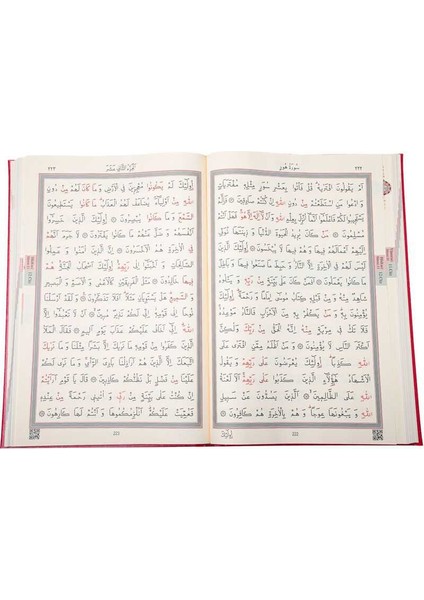 سُورَةُ هُودٍ ٢٢٢
اَمْ يَقُولُونَ افْتَرٰيهُ قُلْ فَأْتُوا بِعَشْرِ سُوَرٍ مِثْلِه۪ مُفْتَرَيَاتٍ
وَادْعُوا مَنِ اسْتَطَعْتُمْ مِنْ دُونِ اللّٰهِ اِنْ كُنْتُمْ صَادِق۪ينَ ۞ فَاِلَّمْ
يَسْتَج۪يبُوا لَكُمْ فَاعْلَمُٓوا اَنَّمَٓا اُنْزِلَ بِعِلْمِ اللّٰهِ وَاَنْ لَٓا اِلٰهَ اِلَّا هُوَ فَهَلْ اَنْتُمْ
مُسْلِمُونَ ۞ مَنْ كَانَ يُر۪يدُ الْحَيٰوةَ الدُّنْيَا وَز۪ينَتَهَا نُوَفِّ
اِلَيْهِمْ اَعْمَالَهُمْ ف۪يهَا وَهُمْ ف۪يهَا لَا يُبْخَسُونَ ۞ اُو۬لٰٓئِكَ الَّذ۪ينَ
لَيْسَ لَهُمْ فِي الْاٰخِرَةِ اِلَّا النَّارُ وَحَبِطَ مَا صَنَعُوا ف۪يهَا وَبَاطِلٌ
مَا كَانُوا يَعْمَلُونَ ۞ اَفَمَنْ كَانَ عَلٰى بَيِّنَةٍ مِنْ رَبِّه۪ وَيَتْلُوهُ
شَاهِدٌ مِنْهُ وَمِنْ قَبْلِه۪ كِتَابُ مُوسٰٓى اِمَامًا وَرَحْمَةً اُو۬لٰٓئِكَ يُؤْمِنُونَ
بِه۪ وَمَنْ يَكْفُرْ بِه۪ مِنَ الْاَحْزَابِ فَالنَّارُ مَوْعِدُهُ
فَلَا تَكُ ف۪ي مِرْيَةٍ مِنْهُ اِنَّهُ الْحَقُّ مِنْ رَبِّكَ وَلٰكِنَّ اَكْثَرَ
النَّاسِ لَا يُؤْمِنُونَ ۞ وَمَنْ اَظْلَمُ مِمَّنِ افْتَرٰى عَلَى
اللّٰهِ كَذِبًا اُو۬لٰٓئِكَ يُعْرَضُونَ عَلٰى رَبِّهِمْ وَيَقُولُ
الْاَشْهَادُ هٰٓؤُ۬لَٓاءِ الَّذ۪ينَ كَذَبُوا عَلٰى رَبِّهِمْ اَلَا لَعْنَةُ
اللّٰهِ عَلَى الظَّالِم۪ينَ ۞ اَلَّذ۪ينَ يَصُدُّونَ عَنْ سَب۪يلِ
اللّٰهِ وَيَبْغُونَهَا عِوَجًا وَهُمْ بِالْاٰخِرَةِ هُمْ كَافِرُونَ ۞
اُو۬لٰٓئِكَ
222
اَلْجُزْءُ الثَّانِي عَشَرَ ٢٢٣
اُو۬لٰٓئِكَ لَمْ يَكُونُوا مُعْجِز۪ينَ فِي الْاَرْضِ وَمَا كَانَ لَهُمْ مِنْ دُونِ
اللّٰهِ مِنْ اَوْلِيَٓاءَ يُضَاعَفُ لَهُمُ الْعَذَابُ مَا كَانُوا يَسْتَط۪يعُونَ
السَّمْعَ وَمَا كَانُوا يُبْصِرُونَ ۞ اُو۬لٰٓئِكَ الَّذ۪ينَ خَسِرُٓوا
اَنْفُسَهُمْ وَضَلَّ عَنْهُمْ مَا كَانُوا يَفْتَرُونَ ۞ لَا جَرَمَ اَنَّهُمْ
فِي الْاٰخِرَةِ هُمُ الْاَخْسَرُونَ ۞ اِنَّ الَّذ۪ينَ اٰمَنُوا وَعَمِلُوا
الصَّالِحَاتِ وَاَخْبَتُٓوا اِلٰى رَبِّهِمْ اُو۬لٰٓئِكَ اَصْحَابُ الْجَنَّةِ هُمْ
ف۪يهَا خَالِدُونَ ۞ مَثَلُ الْفَر۪يقَيْنِ كَالْاَعْمٰى وَالْاَصَمِّ وَالْبَص۪يرِ
وَالسَّم۪يعِ هَلْ يَسْتَوِيَانِ مَثَلًا اَفَلَا تَذَكَّرُونَ ۞ وَلَقَدْ اَرْسَلْنَا
نُوحًا اِلٰى قَوْمِه۪ٓ اِنّ۪ي لَكُمْ نَذ۪يرٌ مُب۪ينٌ ۞ اَنْ لَا تَعْبُدُٓوا اِلَّا
اللّٰهَ اِنّ۪ٓي اَخَافُ عَلَيْكُمْ عَذَابَ يَوْمٍ اَل۪يمٍ ۞ فَقَالَ الْمَلَاُ
الَّذ۪ينَ كَفَرُوا مِنْ قَوْمِه۪ مَا نَرٰيكَ اِلَّا بَشَرًا مِثْلَنَا وَمَا نَرٰيكَ
اتَّبَعَكَ اِلَّا الَّذ۪ينَ هُمْ اَرَاذِلُنَا بَادِيَ الرَّأْيِ وَمَا نَرٰى لَكُمْ
عَلَيْنَا مِنْ فَضْلٍ بَلْ نَظُنُّكُمْ كَاذِب۪ينَ ۞ قَالَ يَا قَوْمِ اَرَاَيْتُمْ
اِنْ كُنْتُ عَلٰى بَيِّنَةٍ مِنْ رَبّ۪ي وَاٰتٰين۪ي رَحْمَةً مِنْ عِنْدِه۪
فَعُمِّيَتْ عَلَيْكُمْ اَنُلْزِمُكُمُوهَا وَاَنْتُمْ لَهَا كَارِهُونَ ۞
223